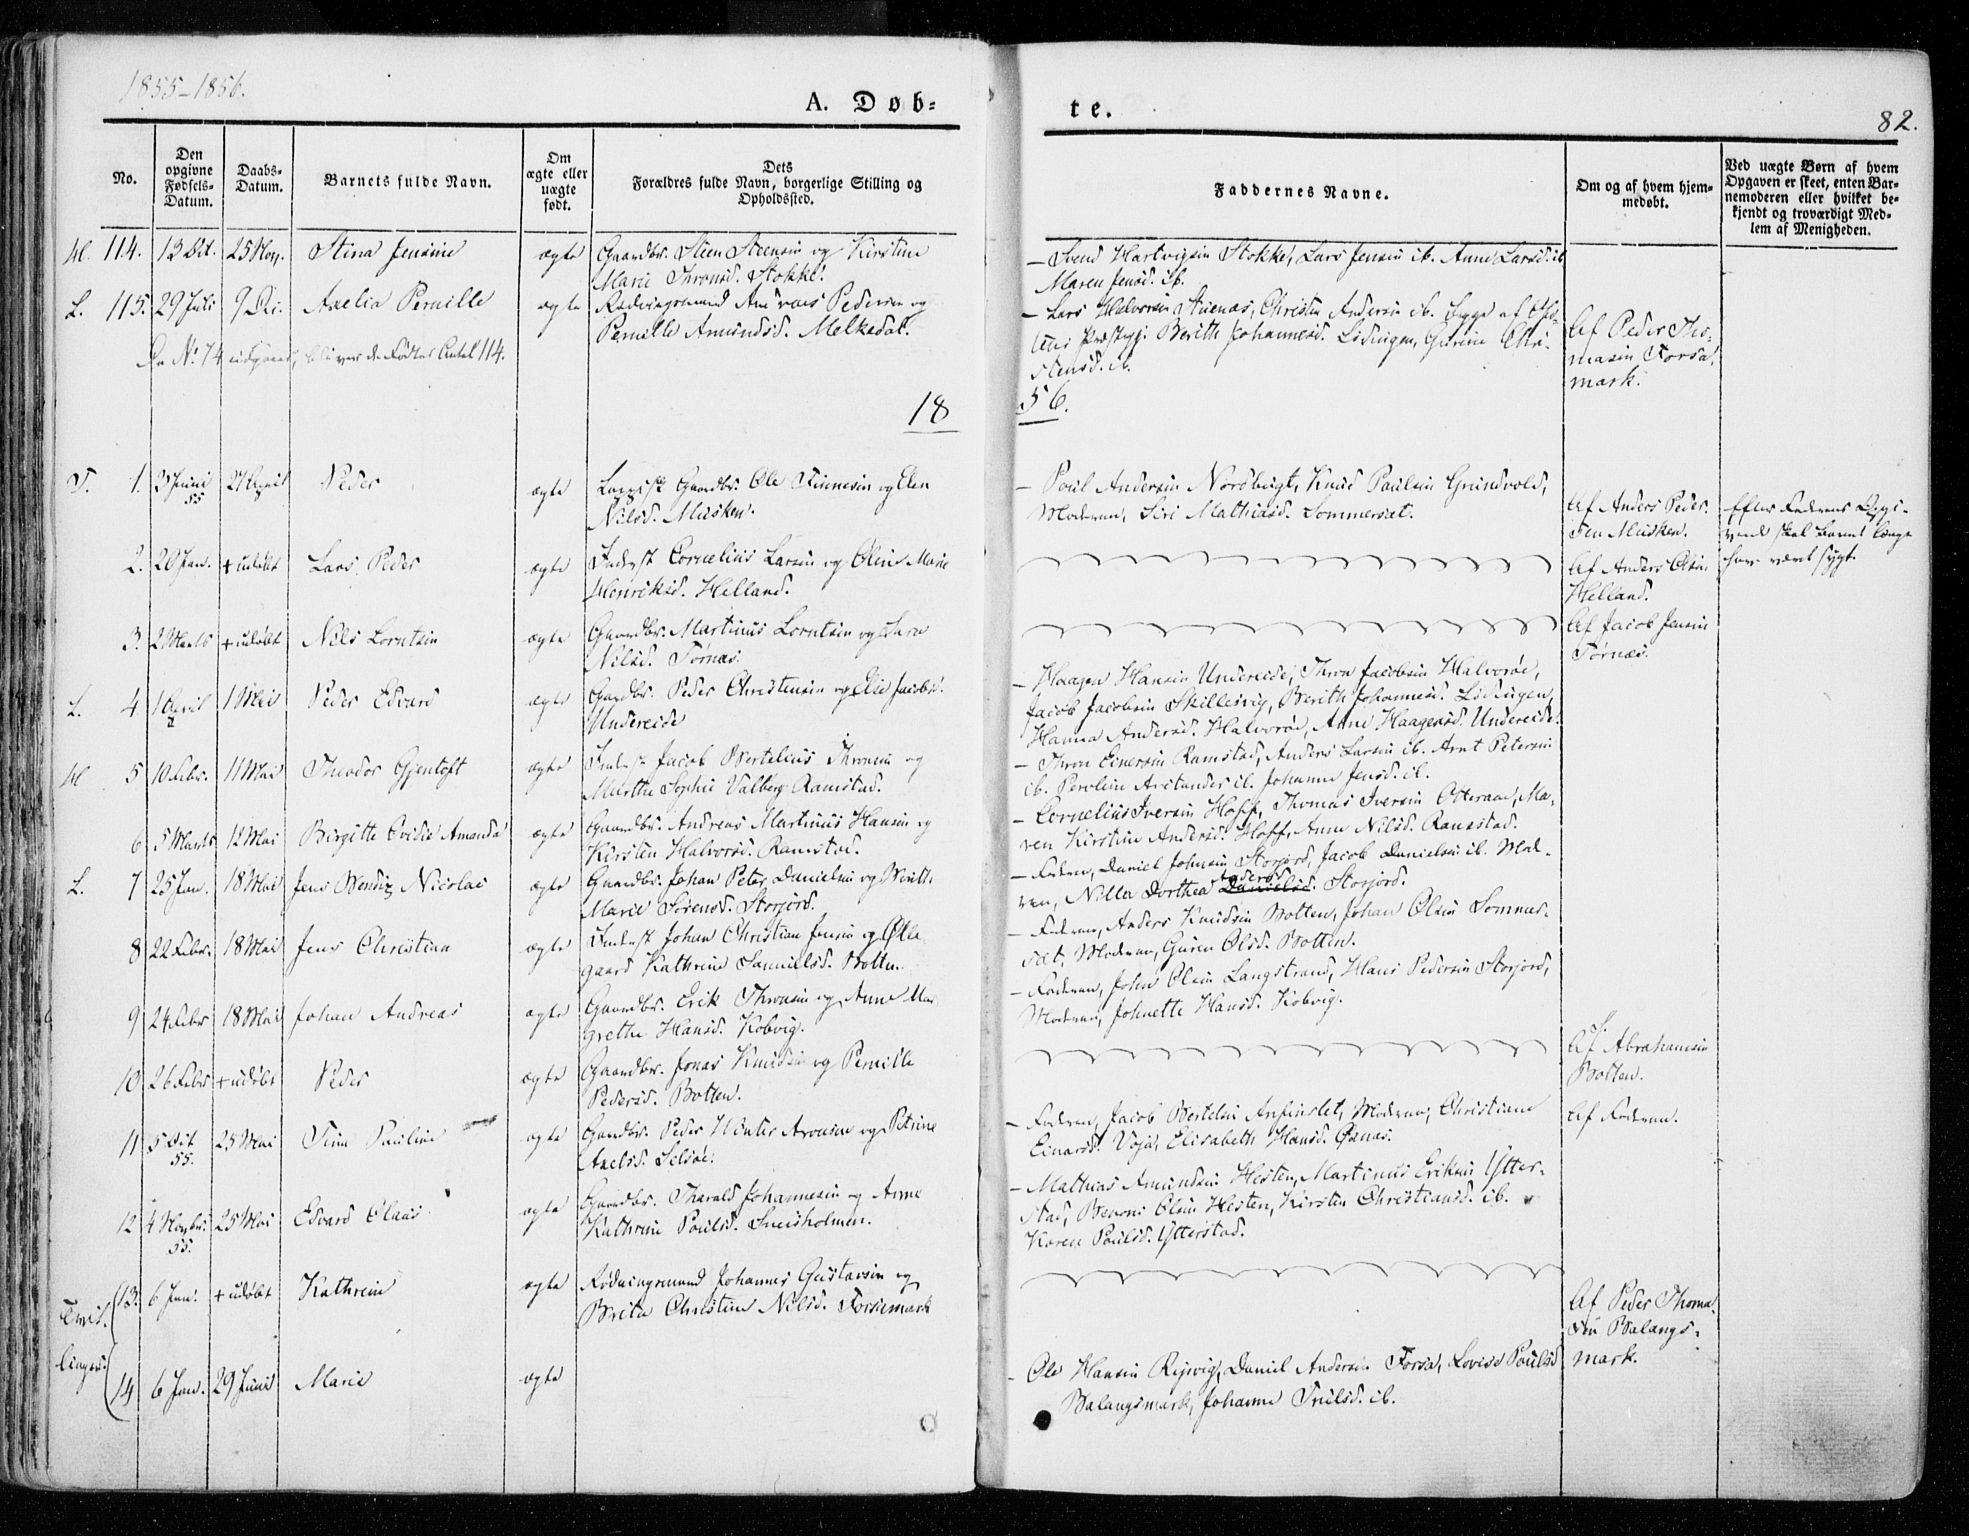 1855-1856.
A. Døb-
te.
82.
No.
Den
opgivne
Fødsels-
Datum.
Daabs-
Datum.
Barnets fulde Navn.
Om
ægte eller
uægte
født.
Dets
Forældres fulde Navn, borgerlige Stilling og
Opholdssted.
Faddernes Navne.
Om og af hvem hjem-
medøbt.
Ved uægte Børn af hvem
Opgaven er skeet, enten Bar-
nemoderen eller hvilket be-
kjendt og troværdigt Med-
lem af Menigheden.
114. 13 Oct. 25 Nov. Stina Jensine ægte Gaardbr. Steen Steensen og Kirstine
Marie Thronsd. Stokke.
- Svend Hartvigsen Stokke, Lars Jensen ib. Anne Larsd. ib
Maren Jensd. ib.
L. 115. 29 Juli 9 Dec. Axelia Pernille ægte Rødningsmand Andreas Pedersen og
Pernille Amundsd. Melkedal.
- Lars Halvorsen Christen Andersen ib.
Berith Johannesd. Lødingen, Gurine Chri-
stensd. ib.
Af Peder Tho-
masen Forsa
mark.
Da No. 74 udgaaer, bliver de Fødtes Antal 114.
18
56.
T. 1. 3 Juni 55 27 April Peder ægte Lappisk Gaardbr. Ole Finnesen og Elen
Nilsd. Musken.
- Poul Andersen Nordbugt, Knud Paulsen Grundvold,
Moderen, Siri Mathiasd. Sommerset.
Af Anders Peder-
sen Musken.
Efter Faderens Opgi-
vende skal Barnet længe
have været sygt.
2. 20 Jan. + udøbt Lars Peder ægte Inderst Cornelius Larsen og Oline Marie
Henriksd. Helland.
Af Anders Olsen
Helland.
3. 2 Marts + udøbt Nils Lorntsen ægte Gaardbr. Martinus Lorntsen og Sara
Nilsd. Tørnæs.
Af Jacob Jensen
Tørnæs.
L. 4 1 April 1 Mai Peder Edvard ægte Gaardbr. Peder Christensen og Elie Jacobsd.
Undereide
- Haagen Hansen Undereide, Thron Jacobsen Halvorøe,
Jacob Jacobsen Skillesvig, Berith Johannesd. Lødingen,
Hanna Andersd. Halvorøe, Anne Haagensd. Undereide.
5 10 Febr. 11 Mai Theodor Gjentoft ægte Inderst Jacob Bertelius Thronsen og
Marthe Sophie Valberg Ramstad.
- Thron Einersen Ramstad, Anders Larsen ib. Arnt Petersen
ib. Peroline Arctander ib. Johanna Jensd. ib.
6 5 Marts 12 Mai Birgitte Amanda ægte Gaardbr. Andreas Martinus Hansen og
Kirsten Halvorsd. Ramstad.
- Cornelius Iversen Hoff, Thomas Iversen Otteraae, Ma-
ren Kirstine Andersd. Hoff, Anne Nilsd. Ramstad.
L. 7 25 Jan. 18 Mai Jens Nicolai ægte Gaardbr. Johan Peter Danielsen og Berith
Marie Sørensd. Storjord.
- Faderen, Daniel Johnsen Storjord, Jacob Danielsen ib. Mode-
ren, Nilla Dorthea Danielsd. Andersd. Storjord.
8 22 Febr. 18 Mai Jens Christian ægte Inderst Johan Christian Jensen og Ølle-
gaard Kathrine Samuelsd. Botten.
- Faderen, Anders Knudsen Botten, Johan Olsen Sommer-
sæt, Moderen, Guren Olsd. Botten.
9 24 Febr 18 Mai Johan Andreas ægte Gaardbr. Erik Thronsen og Anne Mar-
grethe Hansd. Kobvig.
- Faderen, John Olsen Langstrand, Hans Pedersen Storjord,
Moderen, Johnette Hansd. Kobvig.
10 26 Febr + udøbt Peder ægte Gaardbr. Jonas Knudsen og Pernille
Pedersd. Botten.
Af Abrahamsen
Botten.
11 5 Oct 55. 25 Mai Tina Pauline ægte Gaardbr. Peder Winter Aronsen og Petrine
Axelsd. Selsøe.
- Faderen, Jacob Bertelsen Anfinslet, Moderen, Christiane
Einarsd. Voja, Elisabeth Hansd. Øxnæs.
Af Faderen.
12 4 Novbr. 55. 25 Mai Edvard Claus ægte Gaardbr. Tharald Johannesen og Anne
Kathrine Poulsd.
- Mathias Amundsen Hesten, Martinus Eriksen Ytter-
stad, Benoni Olsen Hesten, Kirsten Christiansd. ib.
Karen Poulsd. Ytterstad.
Tvil-
linger.
13. 6 Jan. + udøbt Kathrine ægte Rødningsmand Johannes Gustavsen og
Brita Christine Nilsd. Forsamark
Af Peder Thoma-
sen Balangs-
mark.
14 6 Jan. 29 Juni Marie ægte
- Ole Hansen Rejsvig, Daniel Andersen Forsa, Lovise Poulsd
Balangsmark, Johanna Truelsd. ib.